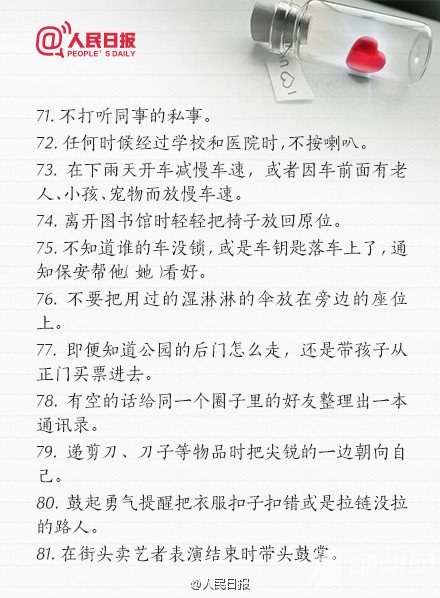 @人民日报
PEOPLE'S DAILY
71. 不打听同事的私事。
72. 任何时候经过学校和医院时,不按喇叭。
73. 在下雨天开车减慢车速，或者因车前面有老
人、小孩、宠物而放慢车速。
74. 离开图书馆时轻轻把椅子放回原位。
75. 不知道谁的车没锁,或是车钥匙落车上了，通
知保安帮他(她)看好。
76. 不要把用过的湿淋淋的伞放在旁边的座位
上。
77. 即便知道公园的后门怎么走，还是带孩子从
正门买票进去。
78. 有空的话给同一个圈子里的好友整理出一本
通讯录。
79. 递剪刀、刀子等物品时把尖锐的一边朝向自
己。
80. 鼓起勇气提醒把衣服扣子扣错或是拉链没拉
的路人。
81. 在街头卖艺者表演结束时带头鼓掌。
@人民日报